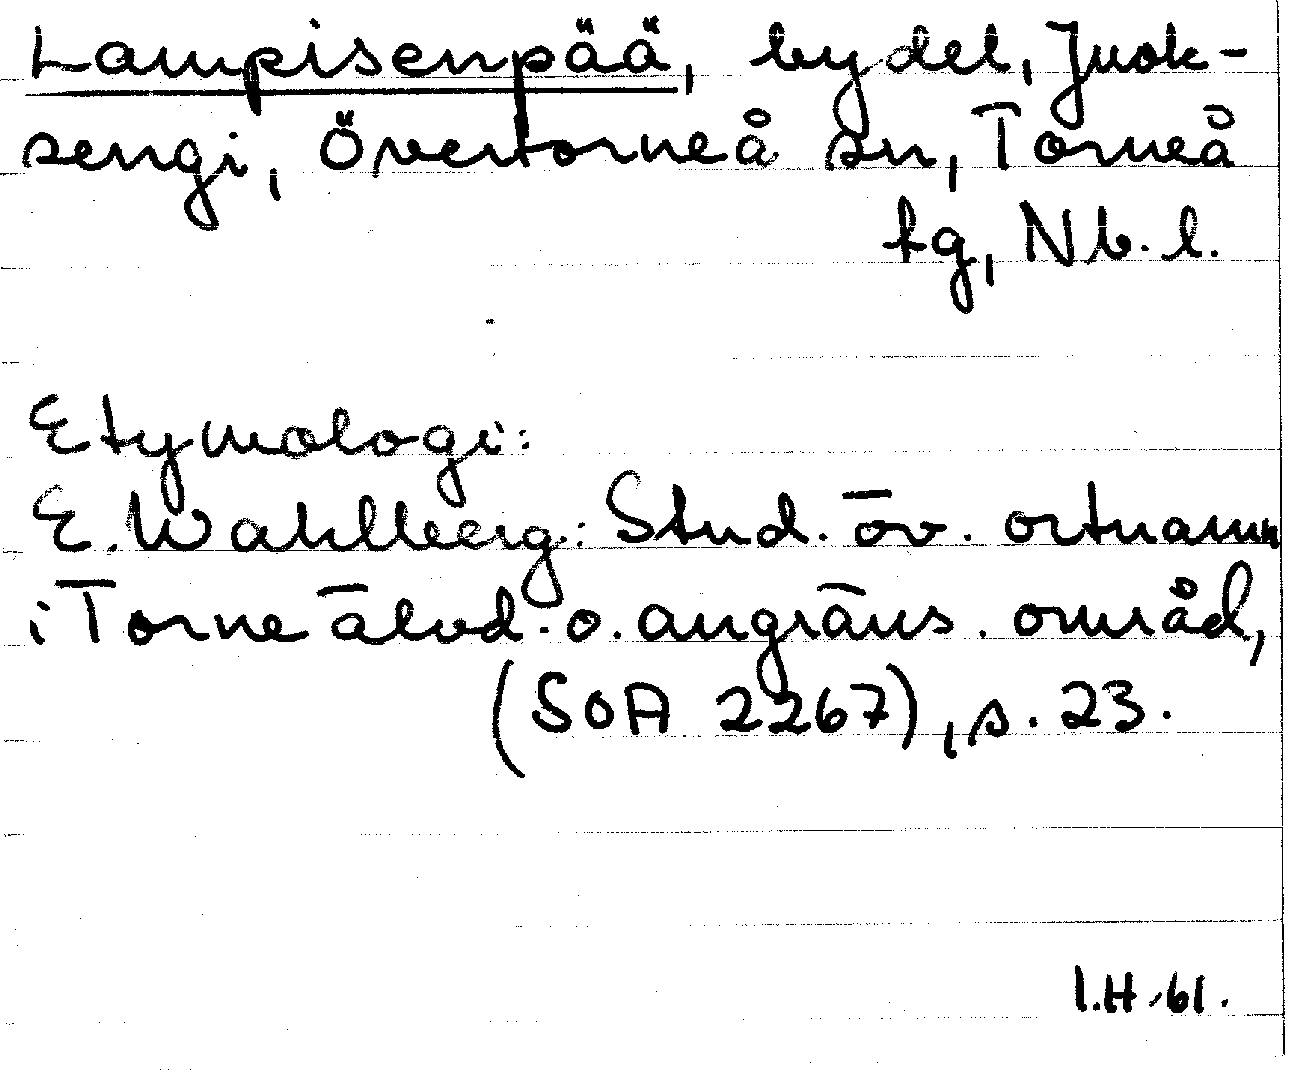 Lampisenpää, bydel, Juok-
sengi, Övertorneå sn, Torneå
tg, Nb. l.
Etymologi:
E. Wahlberg: Stud. öv. ortnamn
i Torne älvd. o. angräns. område,
(SOA 2267), s. 23.
I.H. 61.